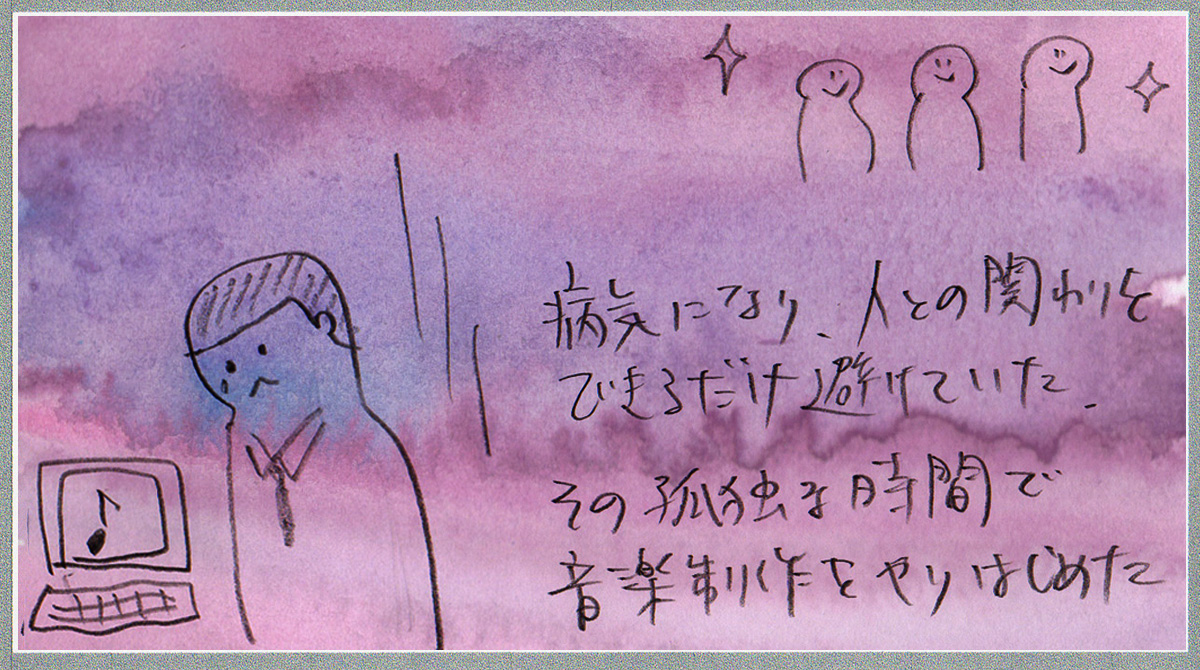 病気になり、人との関わりを
できるだけ避けていた.
その孤独な時間で
音楽制作をやりはじめた